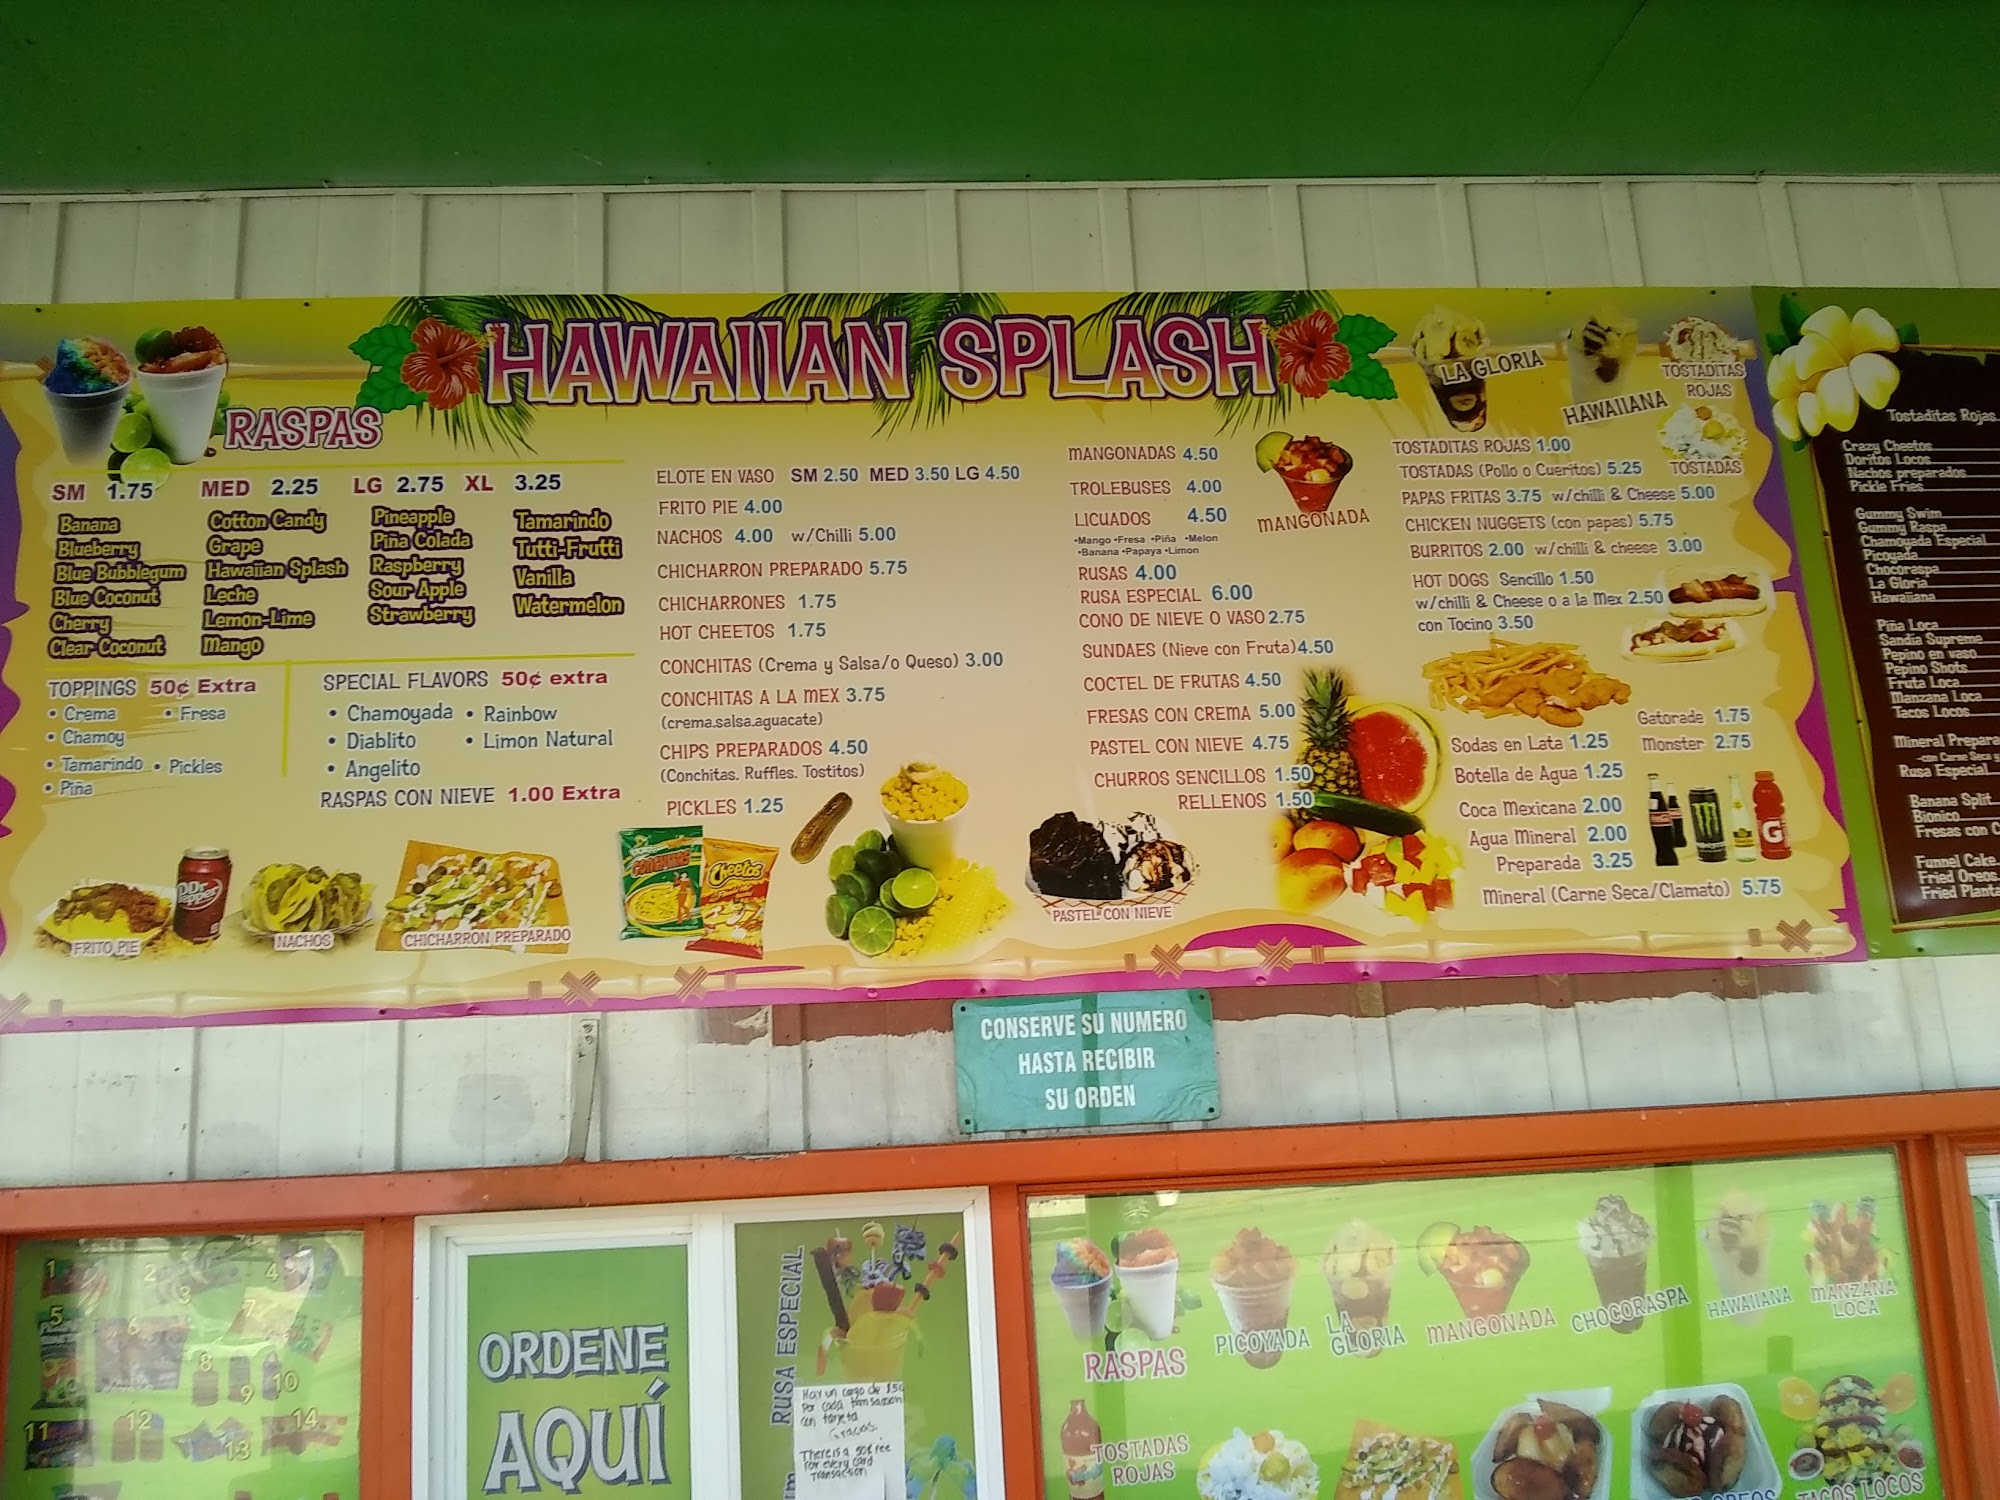 HAWAIIAN SPLASH
RASPAS
SM 1.75 MED 2.25 LG 2.75 XL 3.25
Banana
Blueberry
Blue Bubblegum
Blue Coconut
Cherry
Clear Coconut
Cotton Candy
Grape
Hawaiian Splash
Leche
Lemon-Lime
Mango
Pineapple
Piña Colada
Raspberry
Sour Apple
Strawberry
Tamarindo
Tutti-Frutti
Vanilla
Watermelon
TOPPINGS 50¢ Extra
• Crema • Fresa
• Chamoy
• Tamarindo • Pickles
• Piña
SPECIAL FLAVORS 50¢ extra
• Chamoyada • Rainbow
• Diablito • Limon Natural
• Angelito
RASPAS CON NIEVE 1.00 Extra
FRITO PIE
Dr Pepper
NACHOS
CHICHARRON PREPARADO
Cheetos
ELOTE EN VASO SM 2.50 MED 3.50 LG 4.50
FRITO PIE 4.00
NACHOS 4.00 w/Chilli 5.00
CHICHARRON PREPARADO 5.75
CHICHARRONES 1.75
HOT CHEETOS 1.75
CONCHITAS (Crema y Salsa/o Queso) 3.00
CONCHITAS A LA MEX 3.75
(crema,salsa,aguacate)
CHIPS PREPARADOS 4.50
(Conchitas, Ruffles, Tostitos)
PICKLES 1.25
MANGONADAS 4.50
TROLEBUSES 4.00
LICUADOS 4.50
•Mango •Fresa •Piña •Melon
•Banana •Papaya •Limon
RUSAS 4.00
RUSA ESPECIAL 6.00
CONO DE NIEVE O VASO 2.75
SUNDAES (Nieve con Fruta) 4.50
COCTEL DE FRUTAS 4.50
FRESAS CON CREMA 5.00
PASTEL CON NIEVE 4.75
CHURROS SENCILLOS 1.50
RELLENOS 1.50
MANGONADA
PASTEL CON NIEVE
LA GLORIA
HAWAIIANA
TOSTADITAS
ROJAS
TOSTADAS
TOSTADITAS ROJAS 1.00
TOSTADAS (Pollo o Cueritos) 5.25
PAPAS FRITAS 3.75 w/chilli & Cheese 5.00
CHICKEN NUGGETS (con papas) 5.75
BURRITOS 2.00 w/chilli & cheese 3.00
HOT DOGS Sencillo 1.50
w/chilli & Cheese o a la Mex 2.50
con Tocino 3.50
Gatorade 1.75
Monster 2.75
Sodas en Lata 1.25
Botella de Agua 1.25
Coca Mexicana 2.00
Agua Mineral 2.00
Preparada 3.25
Mineral (Carne Seca/Clamato) 5.75
Tostaditas Rojas
Crazy Cheetos
Doritos Locos
Nachos preparados
Pickle Fries
Gummy Swim
Gummy Raspa
Chamoyada Especial
Picoyada
Chocoraspa
La Gloria
Hawaiiana
Piña Loca
Sandia Supreme
Pepino en vaso
Pepino Shots
Fruta Loca
Manzana Loca
Tacos Locos
Mineral Prepara
-con Carne Seca y
Rusa Especial
Banana Split
Bionico
Fresas con C
Funnel Cake
Fried Oreos
Fried Planta
CONSERVE SU NUMERO
HASTA RECIBIR
SU ORDEN
1 2 3 4
5 6 7
8 9 10
11 12 13 14
ORDENE
AQUÍ
RUSA ESPECIAL
Hay un cargo de $.50
Por cada transaccion
con tarjeta
Gracias.
There is a 50¢ fee
For every card
Transaction
RASPAS
PICOYADA
LA
GLORIA
MANGONADA
CHOCORASPA
HAWAIIANA
MANZANA
LOCA
TOSTADAS
ROJAS
OREOS
TACOS LOCOS